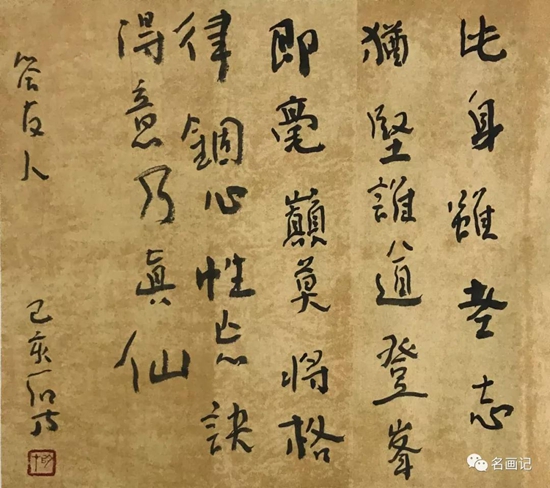 此身雖老志
猶堅誰道登峯
即毫巔莫將格
律錮心性忘訣
得意乃真仙
答友人
己亥
名画记